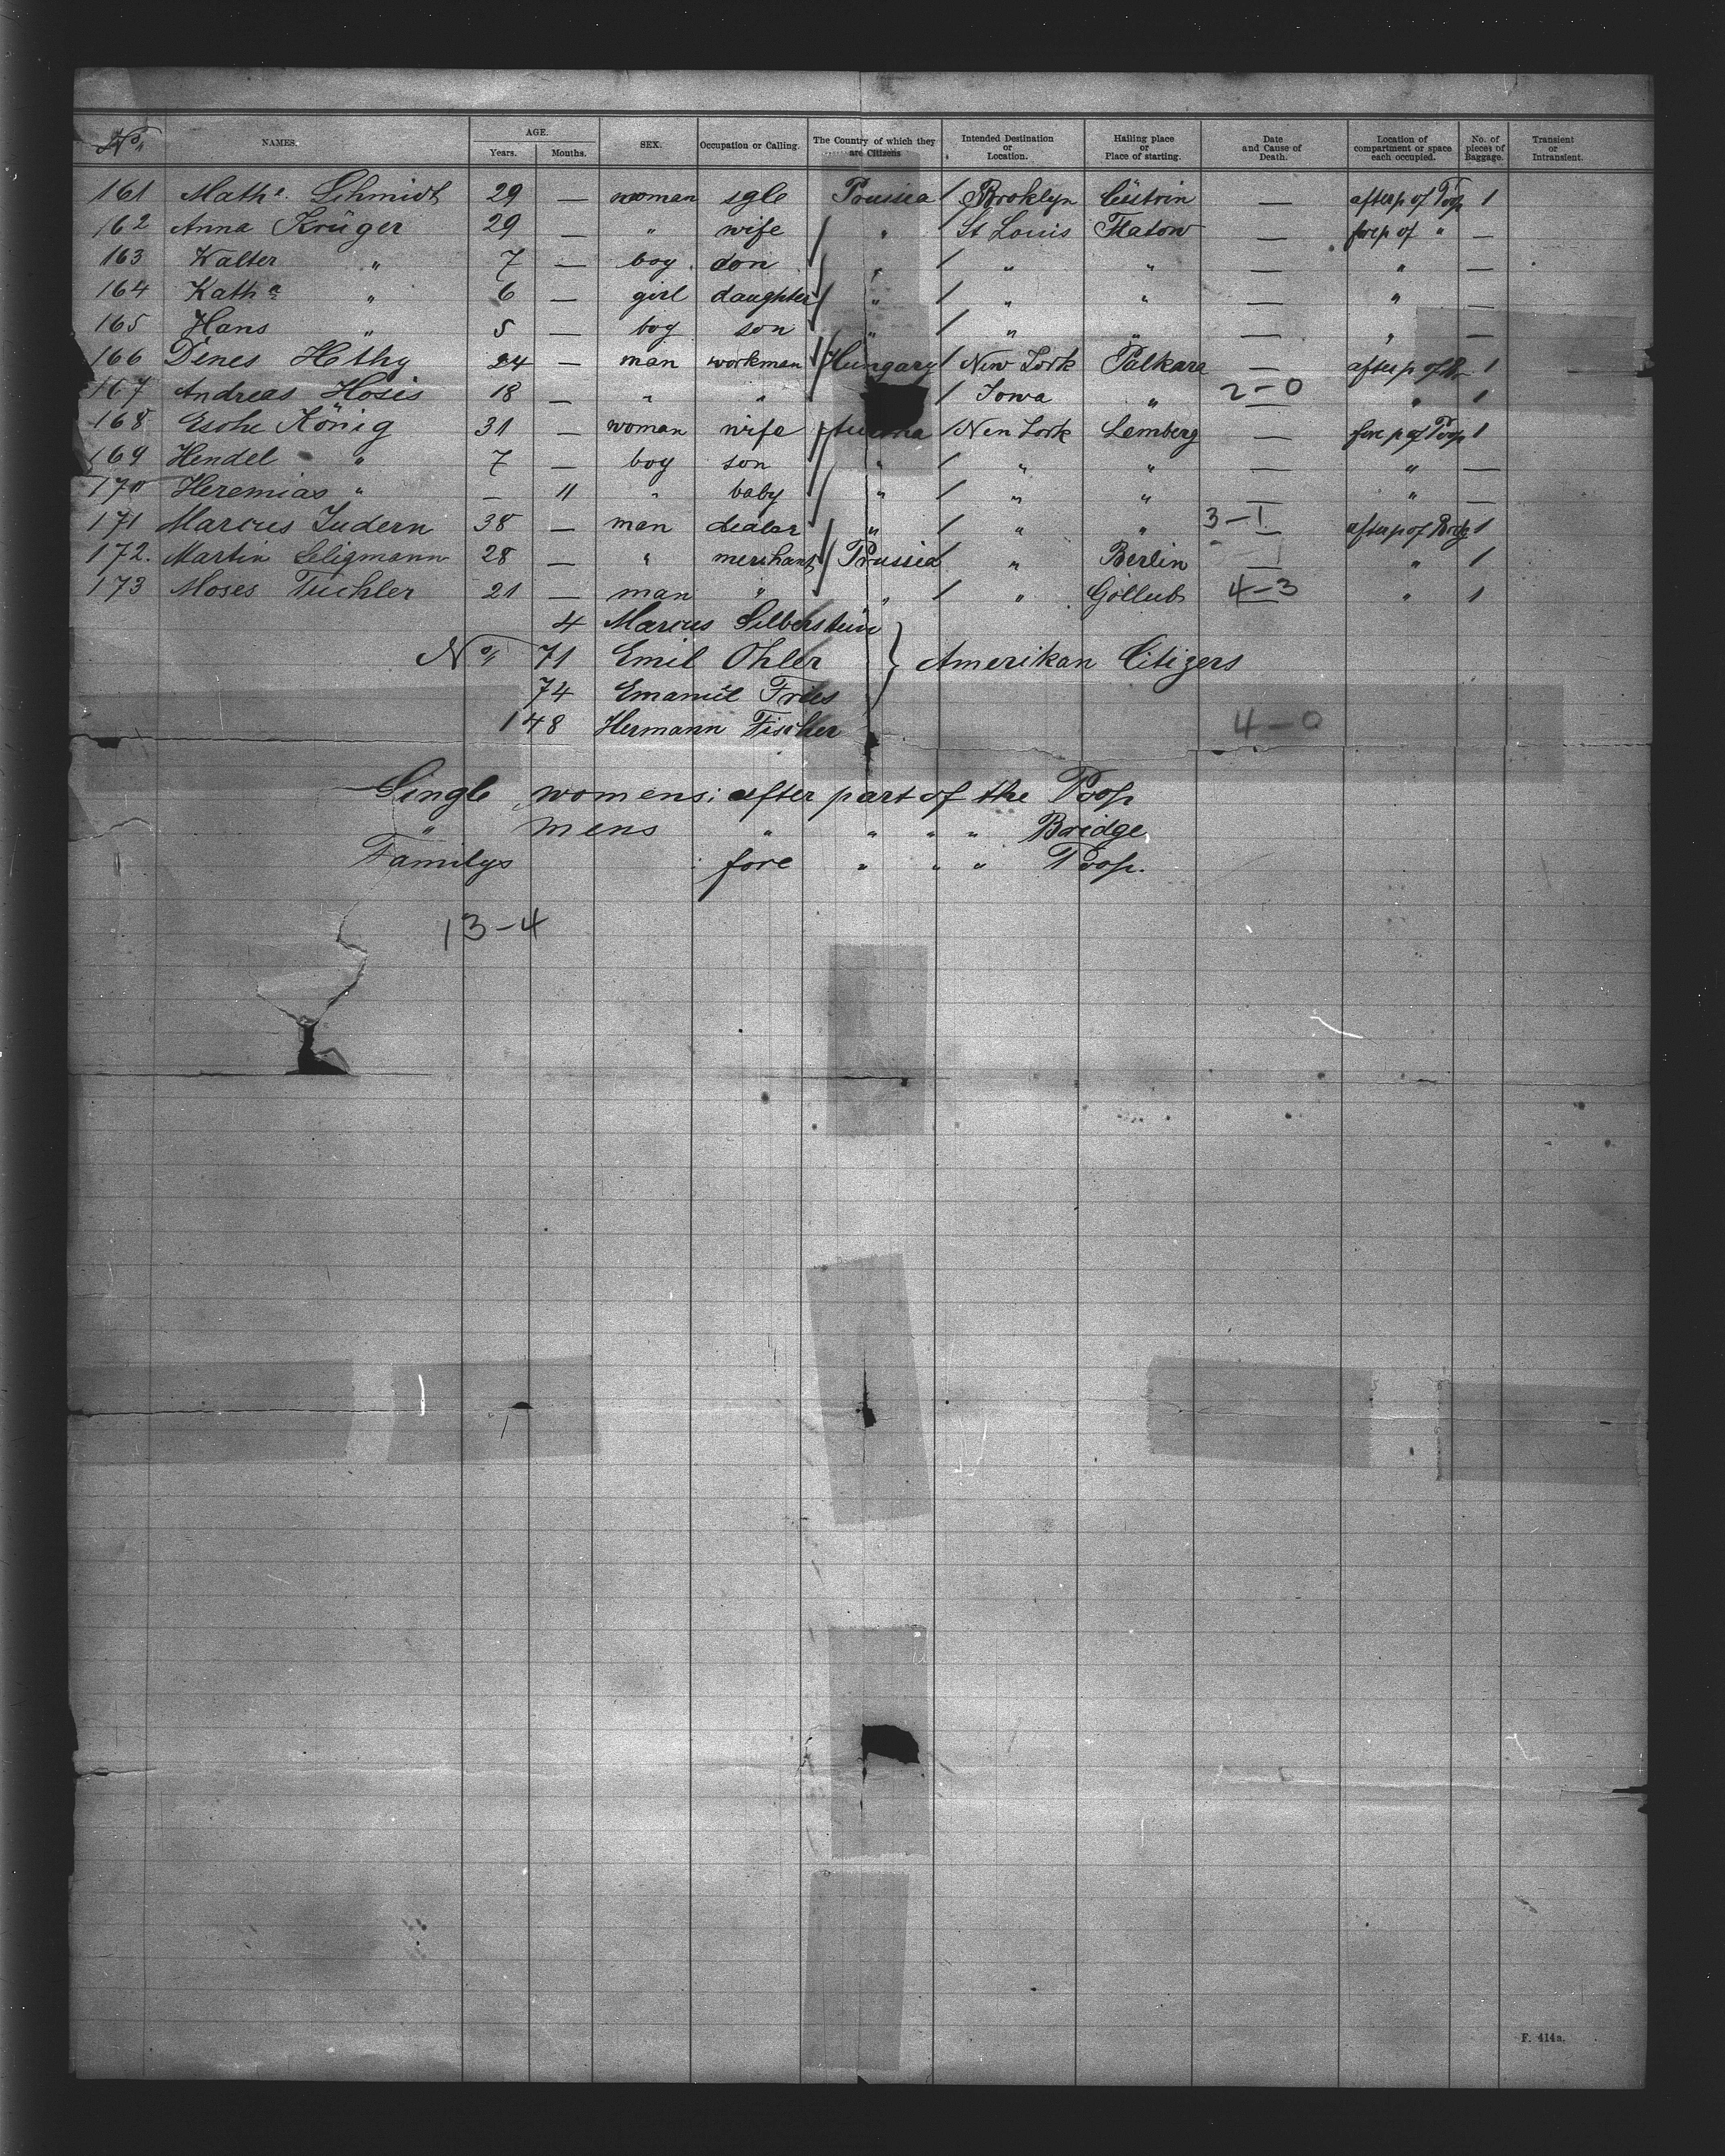 No. NAMES. AGE. Years. Months. SEX. Occupation or Calling. The Country of which they are Citizens Intended Destination or Location. Hailing place or Place of starting. Date and Cause of Death. Location of compartment or space each occupied. No. of pieces of Baggage. Transient or Intransient.
161 Matha. Schmidt 29 — woman sgle Prussia / Broklyn Cüstrin — after p of Poop 1
162 Anna Krüger 29 — " wife / " St Louis Flatow — fore p of " —
163 Walter " 7 — boy son / " / " " — " —
164 Katha " 6 — girl daughter / " / " " — " —
165 Hans " 5 — boy son / " / " " — " —
166 Denes Hethy 24 — man workman / Hungary / New York Palkara — after p of Br 1
167 Andreas Hosis 18 — " " / Iowa " 2-0 " 1
168 Esche König 31 — woman wife / Austria / New York Lemberg — fore p of Poop 1
169 Hendel " 7 — boy son / " / " " — " —
170 Heremias " — 11 " baby / " / " " — " —
171 Marcus Judern 38 — man dealer / " / " " 3-1 after p of Bridg 1
172. Martin Seligmann 28 — " merchant / Prussia " Berlin — " 1
173 Moses Tuchler 21 — man " / " / " Gollub 4-3 " 1
4 Marcus Silberstein
No. 71 Emil Ohler } Amerikan Citizers
74 Emanuel Frees
148 Hermann Fischer 4-0
Single womens: after part of the Poop
" mens " " " " Bridge
Familys fore " " " Poop.
13-4
F. 414a.